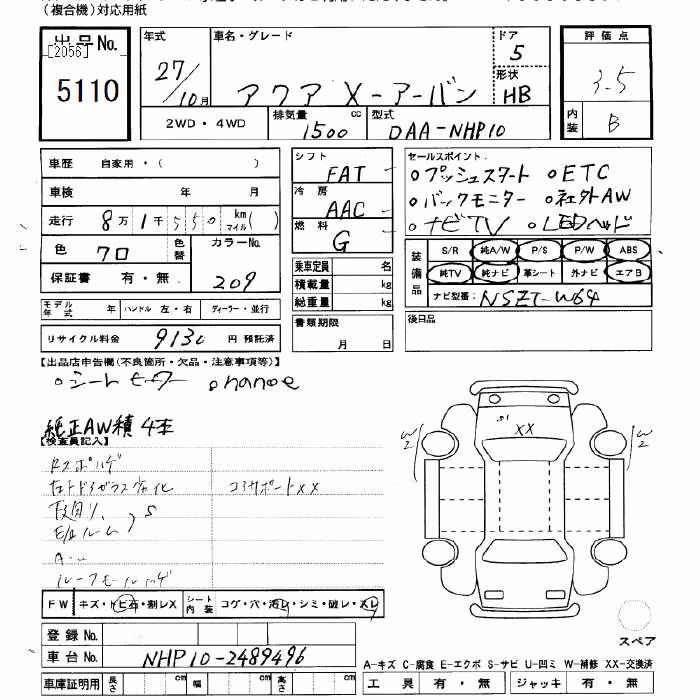 (複合機)対応用紙
出品No.
[2056]
5110
年式
27/10月
車名・グレード
アクア X-アーバン
ドア
5
形状
HB
評価点
3.5
内装
B
2WD・4WD
排気量
1500 cc
型式
DAA-NHP10
車歴 自家用・( )
車検 年 月
走行 8万1千550 km マイル( )
色 クロ 色替
カラーNo.
209
保証書 有・無
シフト
FAT
冷房
AAC
燃料
G
乗車定員 名
積載量 kg
総重量 kg
セールスポイント
○プッシュスタート ○ETC
○バックモニター ○社外AW
○ナビTV ○LEDヘッド
装備品
S/R 純A/W P/S P/W ABS
純TV 純ナビ 革シート 外ナビ エアB
ナビ型番: NSZT-W64
モデル年式 年 ハンドル 左・右 ディーラー・並行
リサイクル料金 9130 円 預託済
書類期限
月 日
後日品
【出品店申告欄(不良箇所・欠品・注意事項等)】
○シートヒーター ○nanoe
純正AW積 4本
【検査員記入】
コアサポートXX
E/Gルーム
S
S1
XX
W2
W2
FW キズ・トビ石・割レX シート内装 コゲ・穴・汚レ・シミ・破レ・スレ
登録No.
車台No. NHP10-2489496
スペア
A-キズ C-腐食 E-エクボ S-サビ U-凹ミ W-補修 XX-交換済
車庫証明用 長さ cm 幅 cm 高さ cm
工具 有・無 ジャッキ 有・無